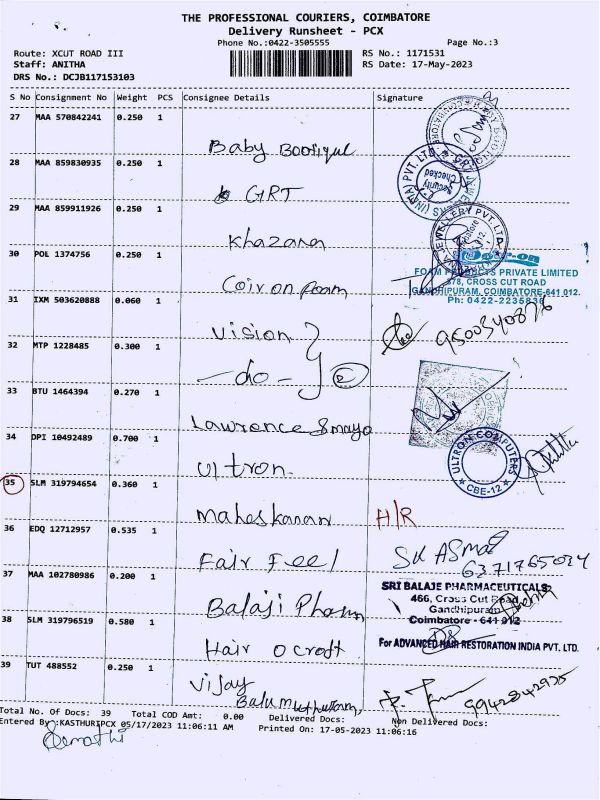 THE PROFESSIONAL COURIERS, COIMBATORE
Delivery Runsheet - PCX
Phone No.:0422-3505555 Page No.:3
Route: XCUT ROAD III RS No.: 1171531
Staff: ANITHA RS Date: 17-May-2023
DRS No.: DCJB117153103
S No Consignment No Weight PCS Consignee Details Signature
27 MAA 570842241 0.250 1
Baby Bootique
28 MAA 859830935 0.250 1
GRT
Security Checked
29 MAA 859911926 0.250 1
Khazana
JEWELLERY PVT. LTD.
30 POL 1374756 0.250 1
Coir on foam
FOAM PRODUCTS PRIVATE LIMITED
378, CROSS CUT ROAD
GANDHIPURAM, COIMBATORE-641 012.
Ph: 0422-2235836
31 IXM 503620888 0.060 1
Vision
32 MTP 1228485 0.300 1
- do - 2
33 BTU 1464394 0.270 1
Lawrence & mayo
34 DPI 10492489 0.700 1
Ultron
ULTRON COMPUTERS
CBE-12
35 SLM 319794654 0.360 1
H/R
36 EDQ 12712957 0.535 1
Fair Feel
6371765024
37 MAA 102780986 0.200 1
Balaji Pharma
SRI BALAJE PHARMACEUTICALS
466, Cross Cut Road,
Gandhipuram
Coimbatore - 641 012
38 SLM 319796519 0.580 1
Hair O Croft
For ADVANCED HAIR RESTORATION INDIA PVT. LTD.
39 TUT 488552 0.250 1
Vijay
9942842925
Total No. Of Docs: 39 Total COD Amt: 0.00 Delivered Docs: Non Delivered Docs:
Entered By:KASTHURIPCX 05/17/2023 11:06:11 AM Printed On: 17-05-2023 11:06:16